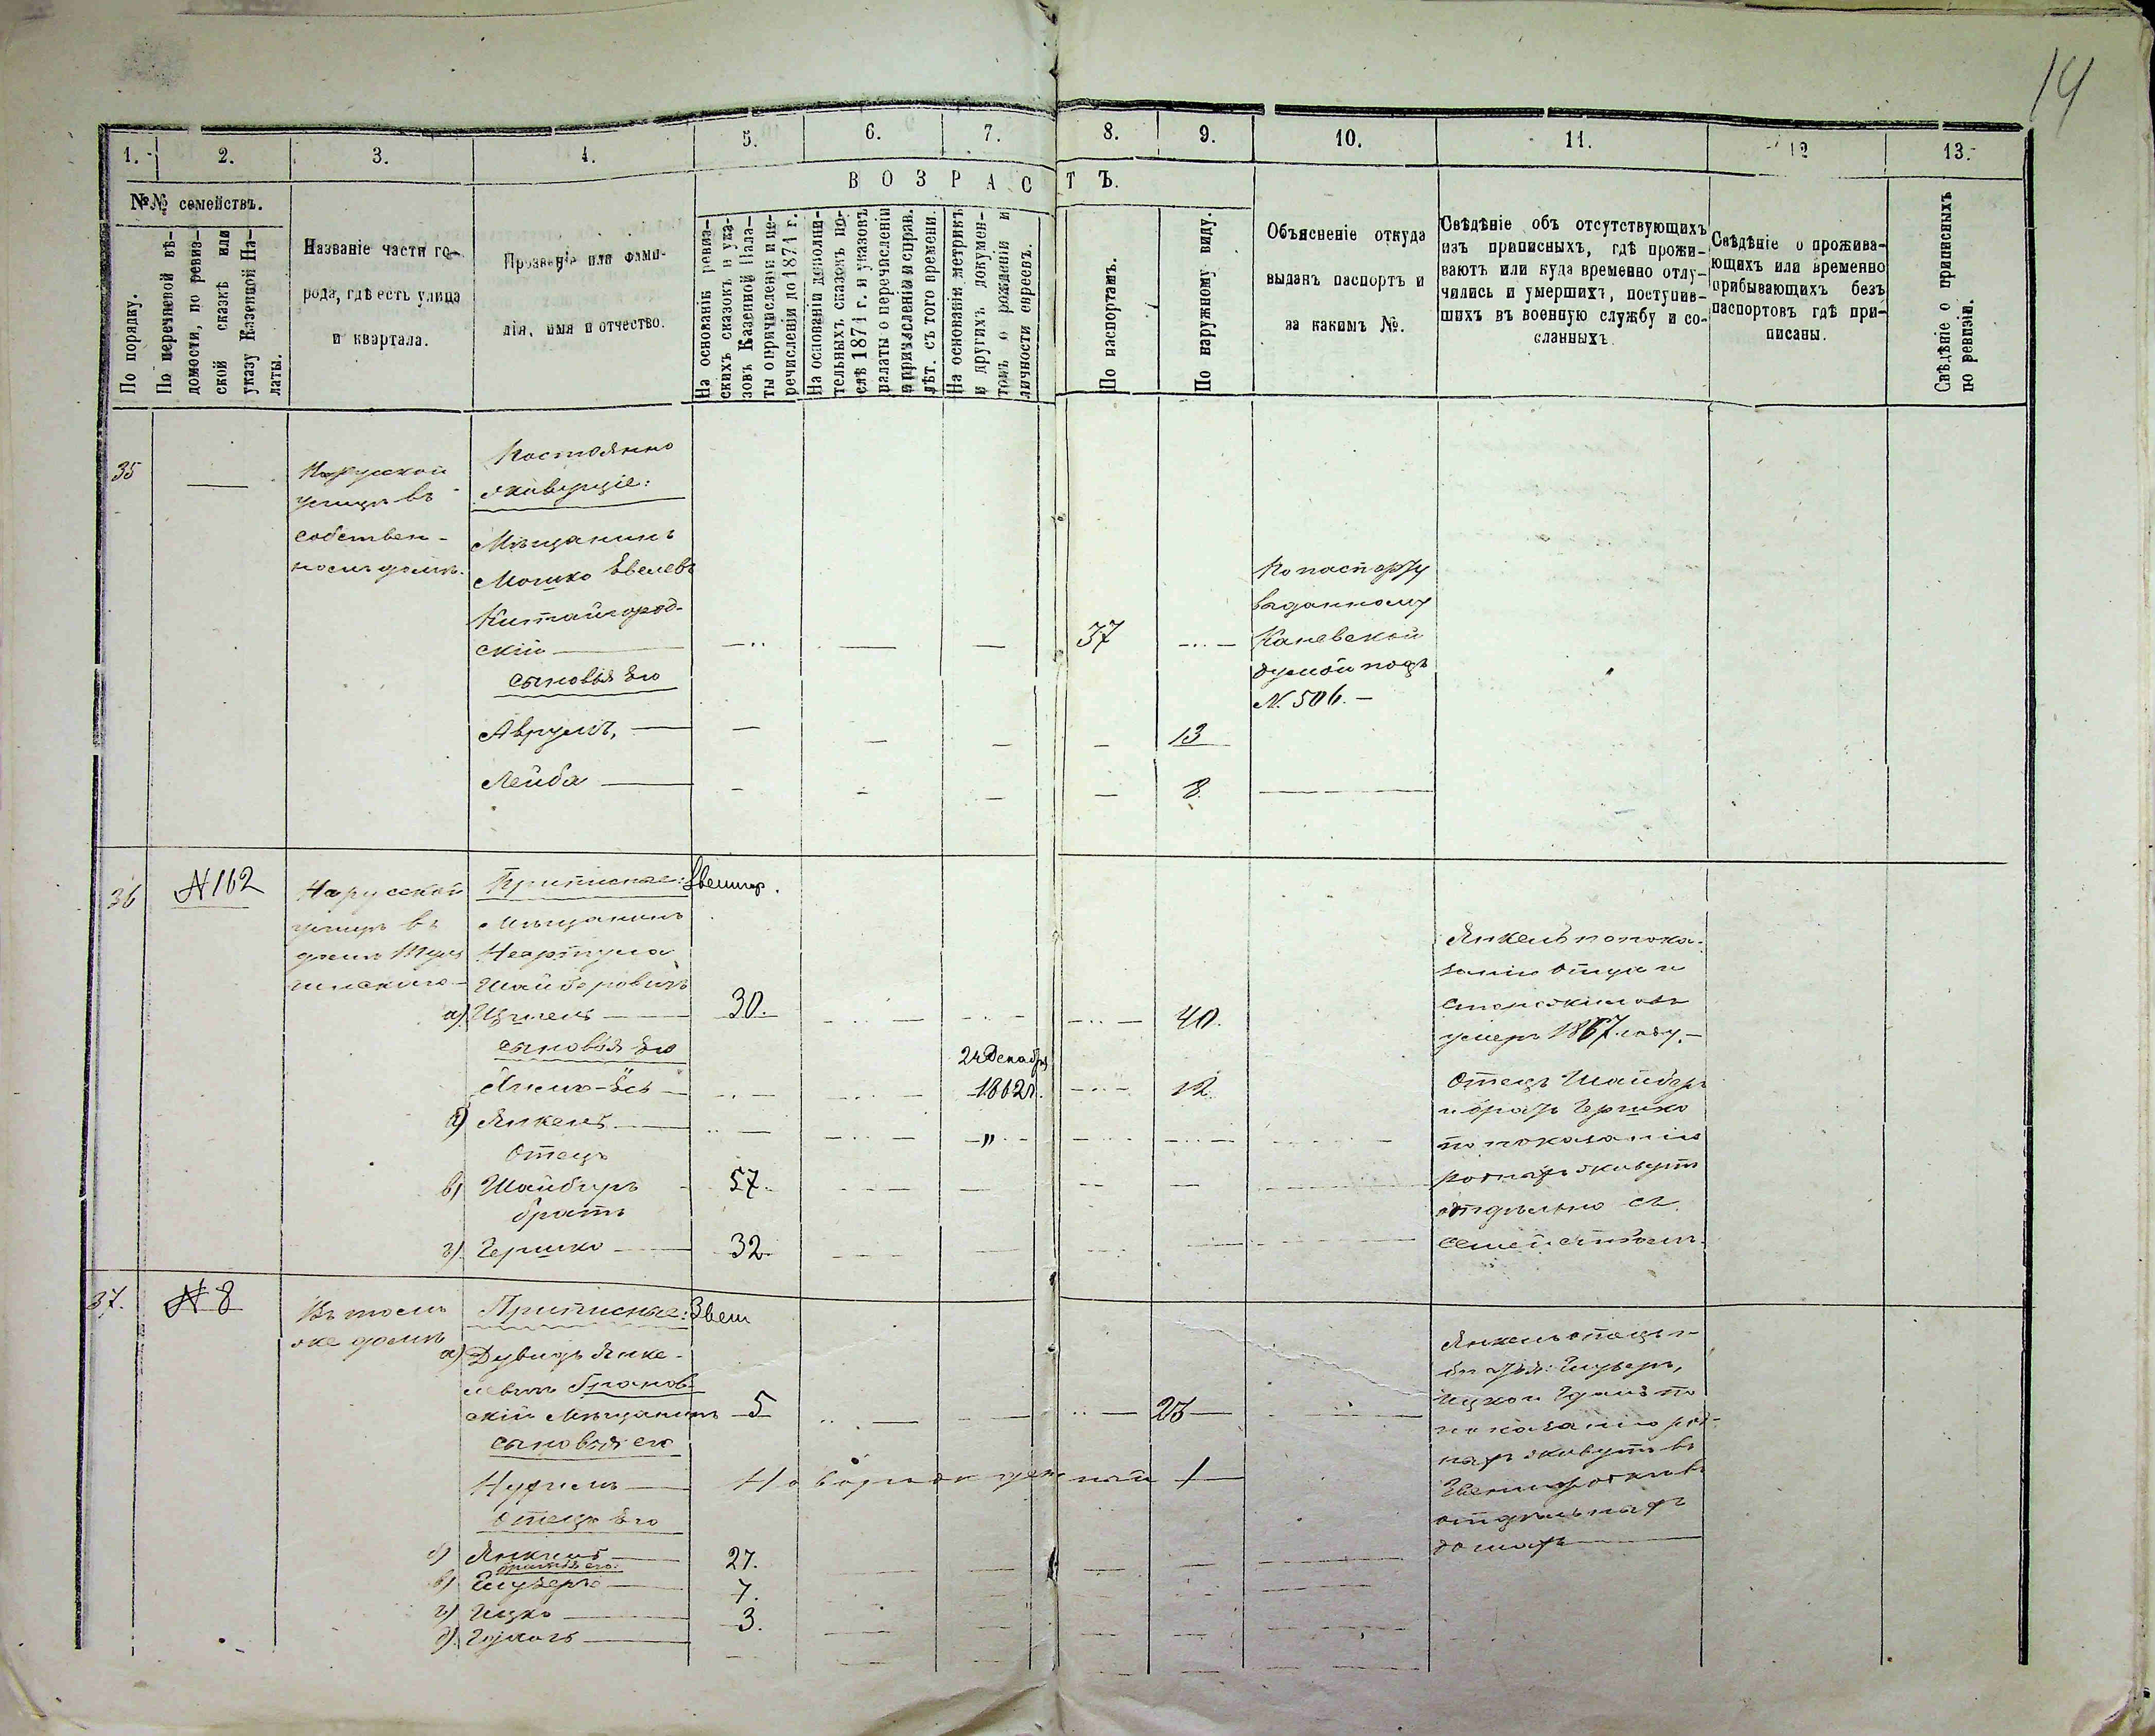 14
1. 2. 3. 4. 5. 6. 7. 8. 9. 10. 11. 12 13.
№№ семействъ.
По порядку.
По перечневой вѣ-
домости, по ревиз-
ской сказкѣ или
указу Казенной Па-
латы.
Названіе части го-
рода, гдѣ есть улица
и квартала.
Прозваніе или фами-
лія, имя и отчество.
ВОЗРАСТЪ.
На основаніи ревиз-
скихъ сказокъ и ука-
зовъ Казенной Пала-
ты о причисленіи и пе-
речисленіи до 1871 г.
На основаніи дополни-
тельныхъ сказокъ по-
слѣ 1871 г. и указовъ
палаты о перечисленіи
и причисленіи и справ.
лѣт. съ того времени.
На основаніи метрикъ
и другихъ докумен-
товъ о рожденіи и
личности евреевъ.
По паспортамъ.
По наружному виду.
Объясненіе откуда
выданъ паспортъ и
за какимъ №.
Свѣдѣніе объ отсутствующихъ
изъ приписныхъ, гдѣ прожи-
ваютъ или куда временно отлу-
чились и умершихъ, поступив-
шихъ въ военную службу и со-
сланныхъ.
Свѣдѣніе о прожива-
ющихъ или временно
прибывающихъ безъ
паспортовъ гдѣ при-
писаны.
Свѣдѣніе о приписныхъ
по ревизіи.
35
На русской
улицѣ въ
собствен-
номъ домѣ.
Постоянно
живущіе:
Мѣщанинъ
Мошко Евелевъ
Китайгород-
скій — 37
сыновья Его
Аврумъ, — 13
Лейба — 8
По паспорту
выданному
Каневской
думой подъ
N. 506. —
36 N 162
На русской
улицѣ въ
домѣ
Приписные: Звениг.
Мѣщанинъ
а) — 30. 40.
сыновья Его
24 Декабря
1862 г. 12
б) Янкель —
Отецъ
в) Шайберъ 57.
братъ
г) Гершко — 32
Янкель по пока-
занію отца и
умеръ 1867 году. —
Отецъ Шайберъ
и братъ Гершко
по показанію
живутъ
отдѣльно съ
семействомъ.
37. N 8
Въ томъ
же домѣ
Приписные: Звен
а) Дувидъ Янке-
левичъ
скій Мѣщанинъ 5 23
сыновья его
Новорожденный 1
Отецъ Его
б) Янкель — 27.
братья его:
в) — 7.
г) Ицко — 3.
д)
Янкель отецъ и
братья:
Ицко и по
показанію
живутъ въ
Звенигородкѣ въ
отдѣльныхъ
домахъ